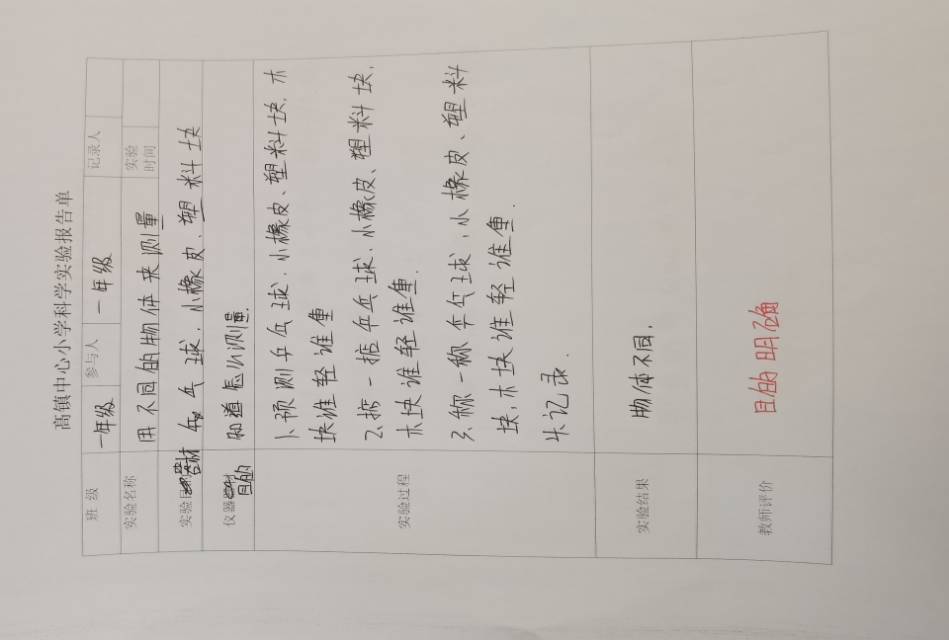 高镇中心小学科学实验报告单
班 级 一年级 参与人 一年级 记录人
实验名称 用不同的物体来测量 实验时间
实验器材 乒乓球、小橡皮、塑料块
仪器目的 知道怎么测量.
实验过程
1、预测乒乓球、小橡皮、塑料块、木
块谁轻谁重
2、掂一掂乒乓球、小橡皮、塑料块、
木块谁轻谁重.
3、称一称乒乓球、小橡皮、塑料
块,木块谁轻谁重.
4、记录.
实验结果 物体不同.
教师评价 目的明确